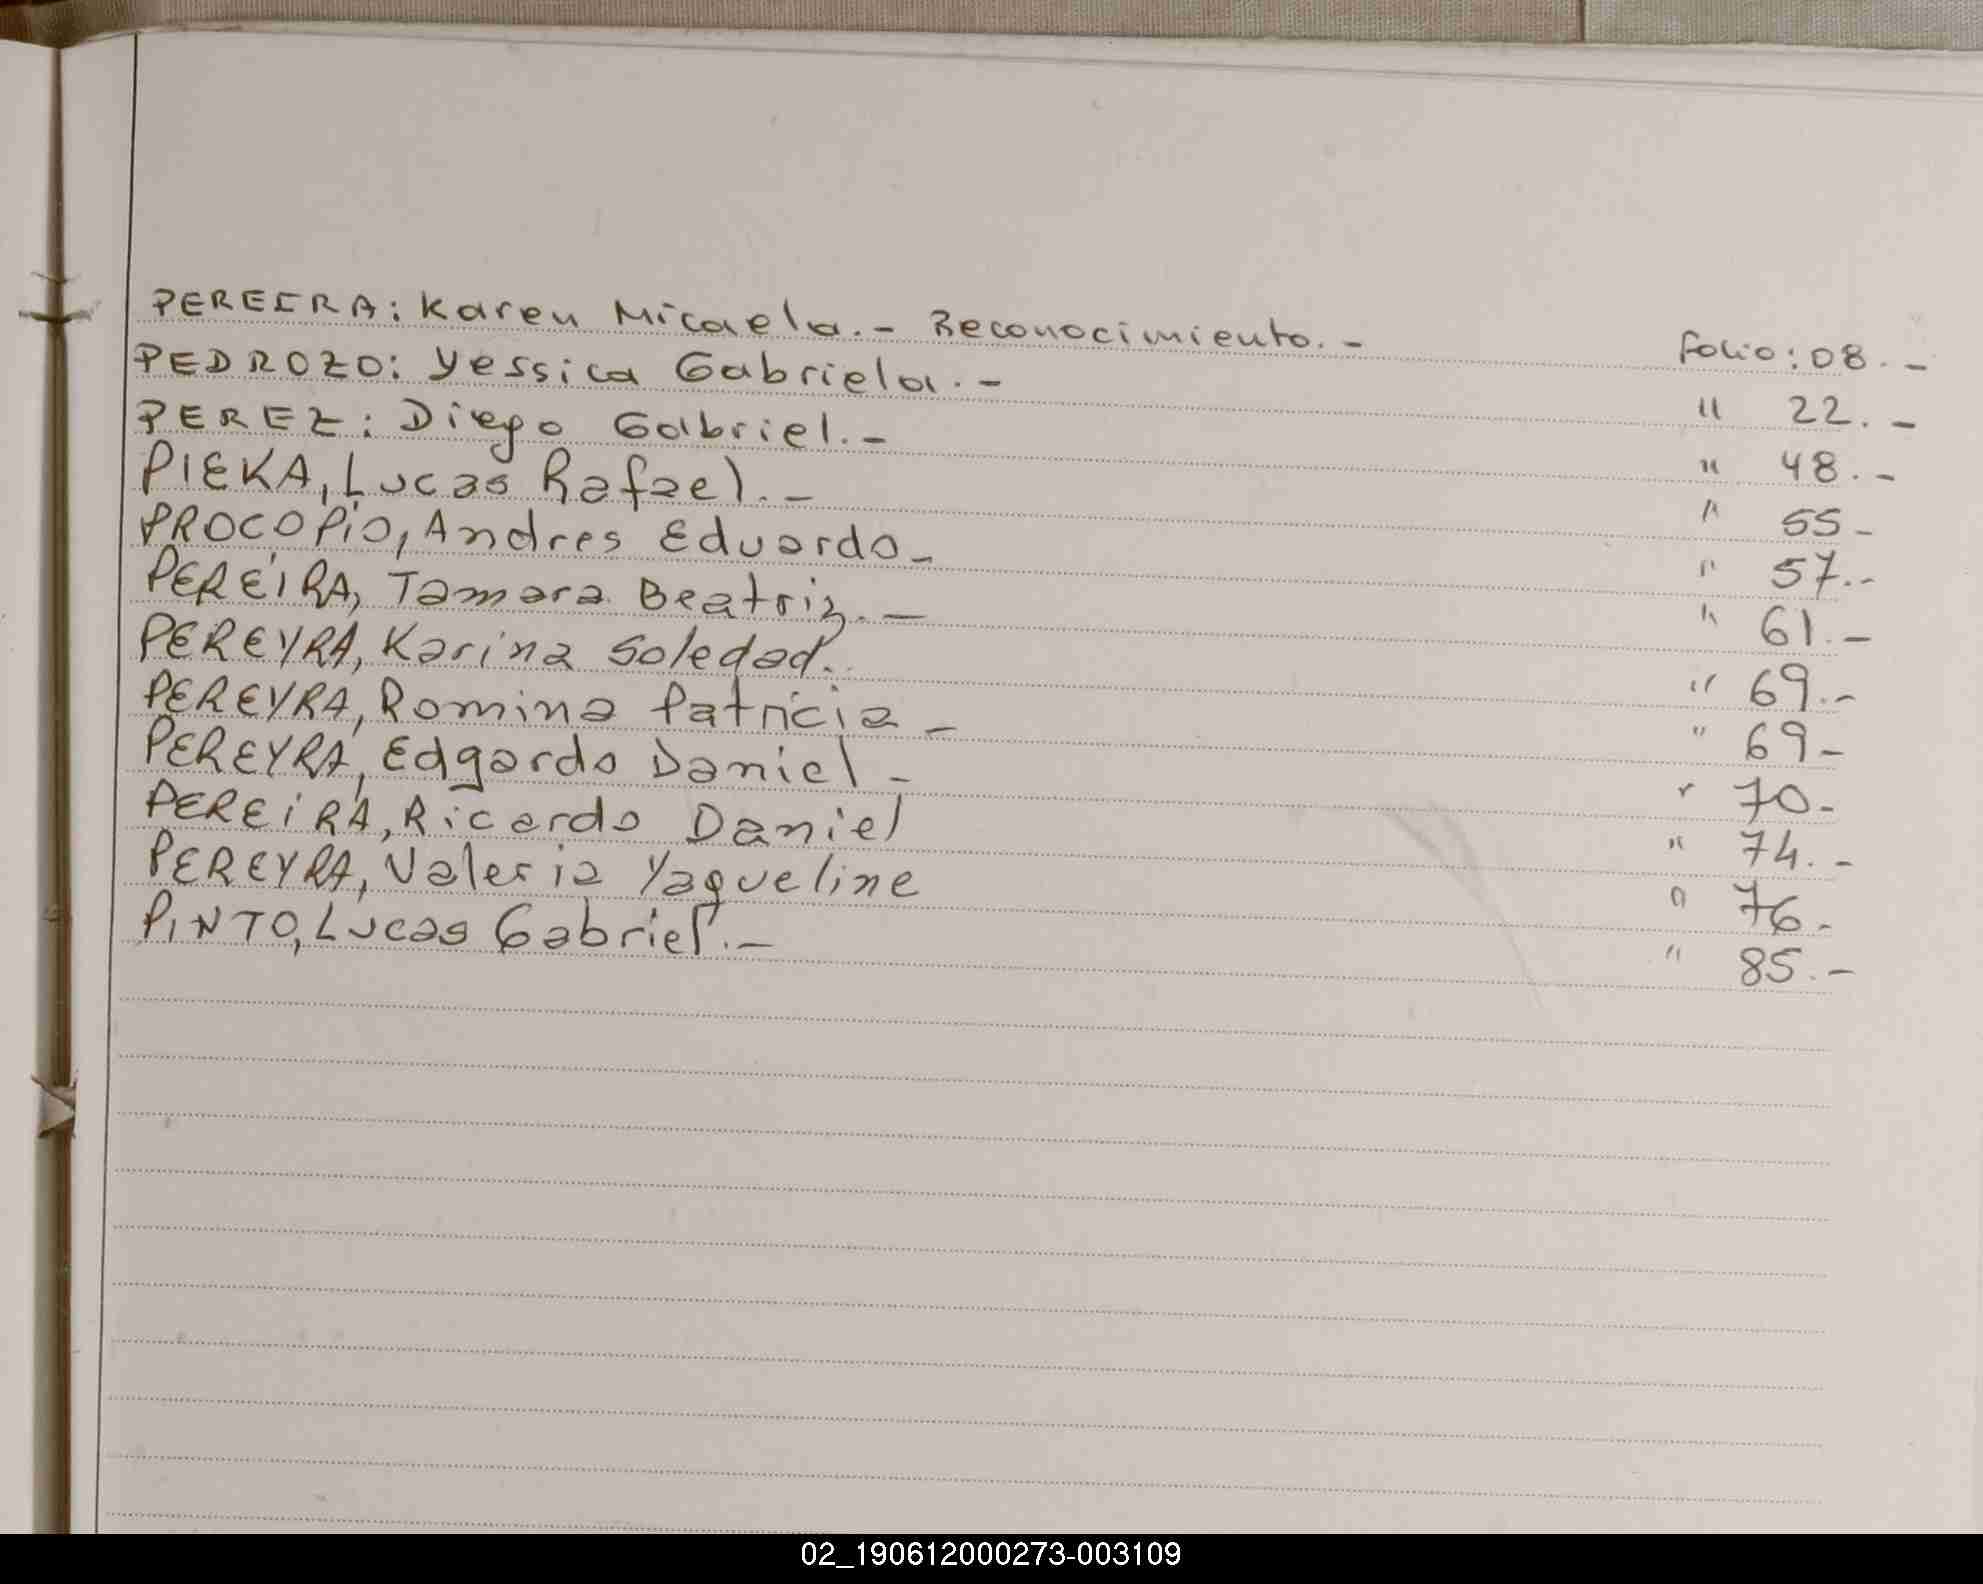 PEREIRA: Karen Micaela.- Reconocimiento.- folio: 08.-
PEDROZO: Yessica Gabriela.- " 22.-
PEREZ: Diego Gabriel.- " 48.-
PIEKA, Lucas Rafael.- " 55-
PROCOPIO, Andres Eduardo- " 57.-
PEREIRA, Tamara Beatriz.- " 61.-
PEREYRA, Karina Soledad.. " 69.-
PEREYRA, Romina Patricia- " 69-
PEREYRA, Edgardo Daniel- " 70-
PEREIRA, Ricardo Daniel " 74.-
PEREYRA, Valeria Yaqueline " 76-
PINTO, Lucas Gabriel.- " 85.-
02_190612000273-003109